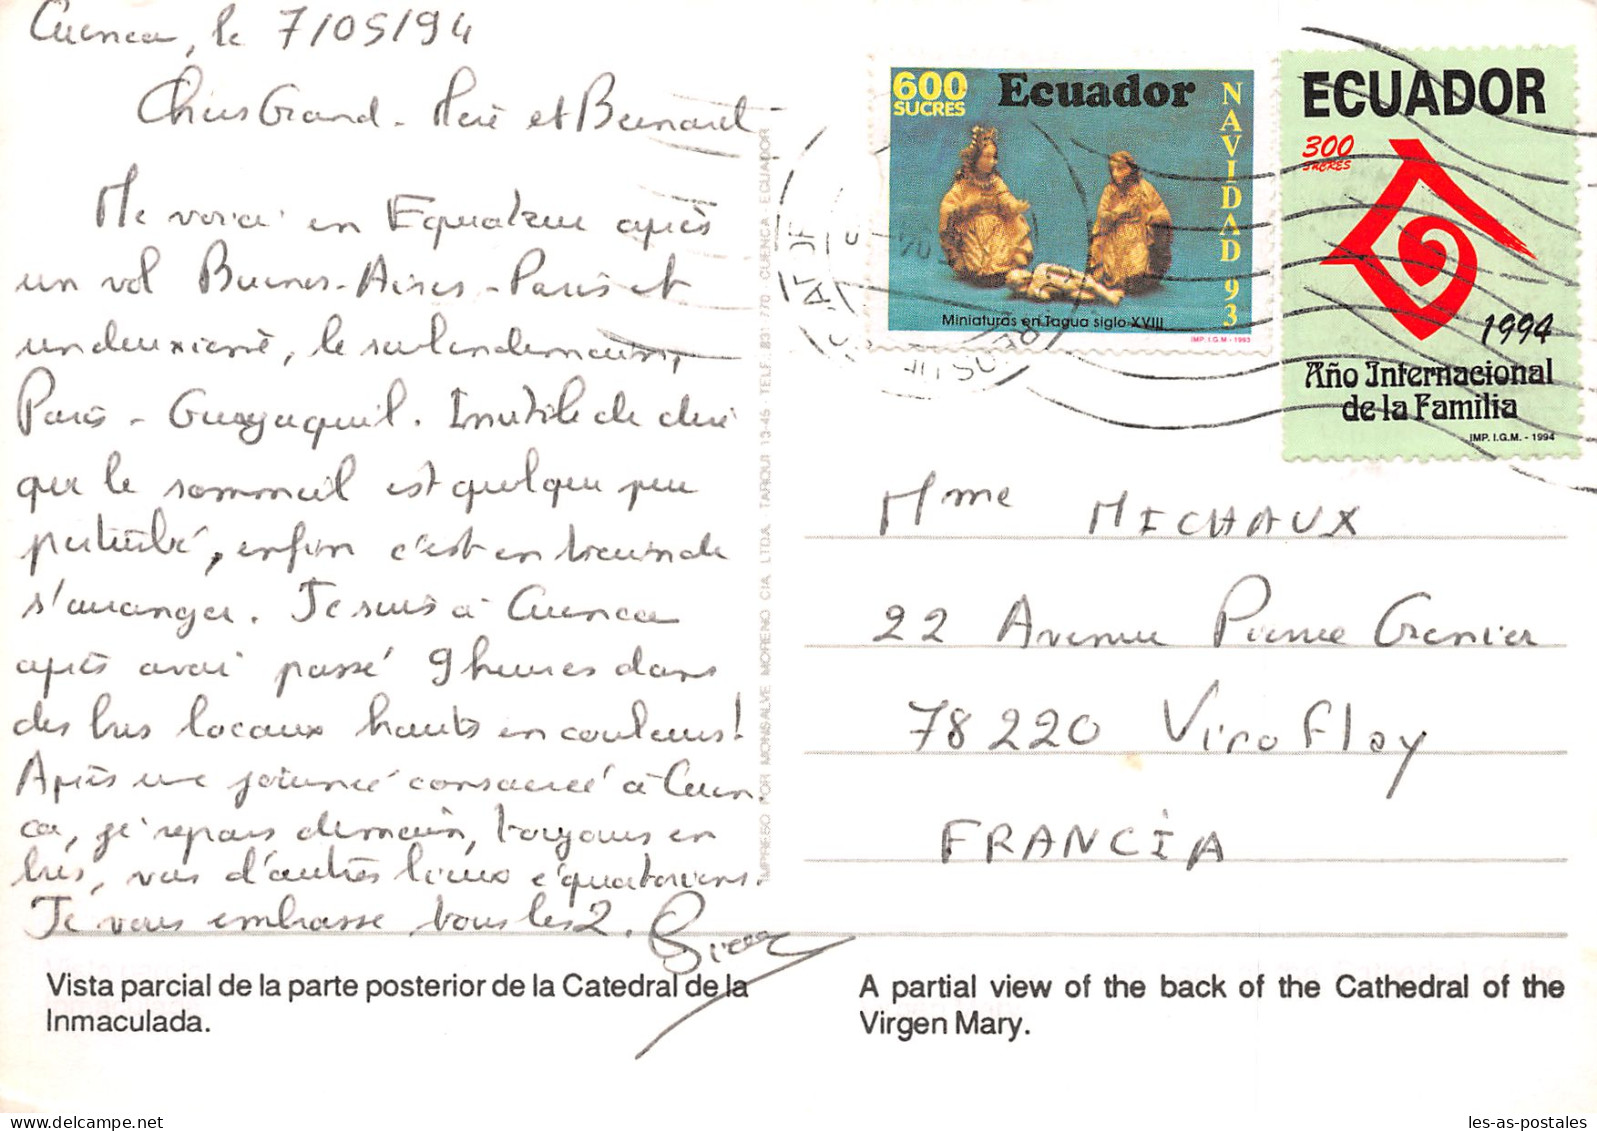 Cuenca, le 7/05/94
Chers Grand-Mère et Bernard
Me voici en Equateur après
un vol Buenos-Aires-Paris et
un deuxième, le surlendemain,
Paris - Guayaquil. Inutile de dire
que le sommeil est quelque peu
perturbé, enfin c'est en train de
s'arranger. Je suis à Cuenca
après avoir passé 9 heures dans
des bus locaux hauts en couleurs!
Après une journée consacrée à Cuen-
ca, je repars demain, toujours en
bus, vers d'autres lieux équatoriens.
Je vous embrasse tous les 2.
600
SUCRES
Ecuador
NAVIDAD 93
Miniaturas en Tagua siglo XVIII
IMP. I.G.M. - 1993
ECUADOR
300
SUCRES
1994
Año Internacional
de la Familia
IMP. I.G.M. - 1994
Mme MICHAUX
22 Avenue Pierre Grenier
78220 Viroflay
FRANCIA
IMPRESO POR MONSALVE MORENO CIA. LTDA. TARQUI 13-45 - TELF. 831 770 - CUENCA - ECUADOR
Vista parcial de la parte posterior de la Catedral de la
Inmaculada.
A partial view of the back of the Cathedral of the
Virgen Mary.
les-as-postales